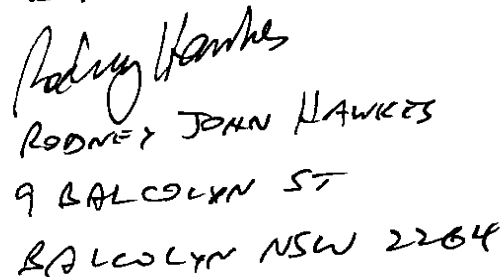 Rodney Hawkes
RODNEY JOHN HAWKES
9 BALCOLYN ST
BALCOLYN NSW 2264